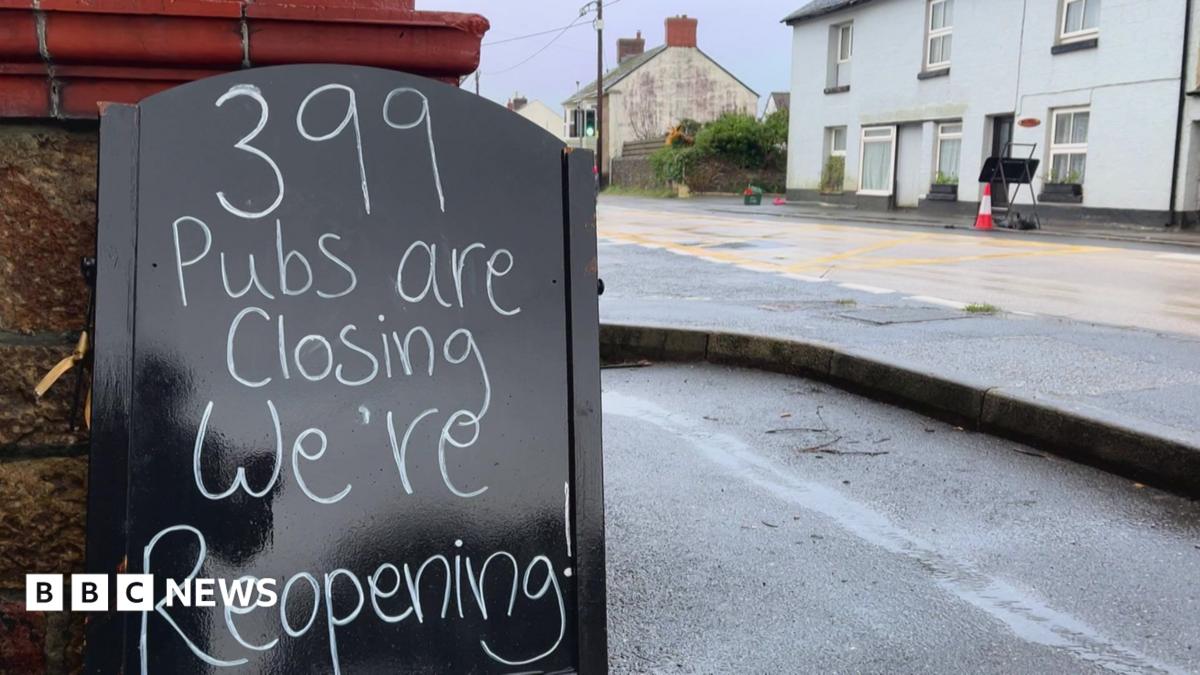 399
Pubs are
Closing
We're
Reopening!
BBC NEWS